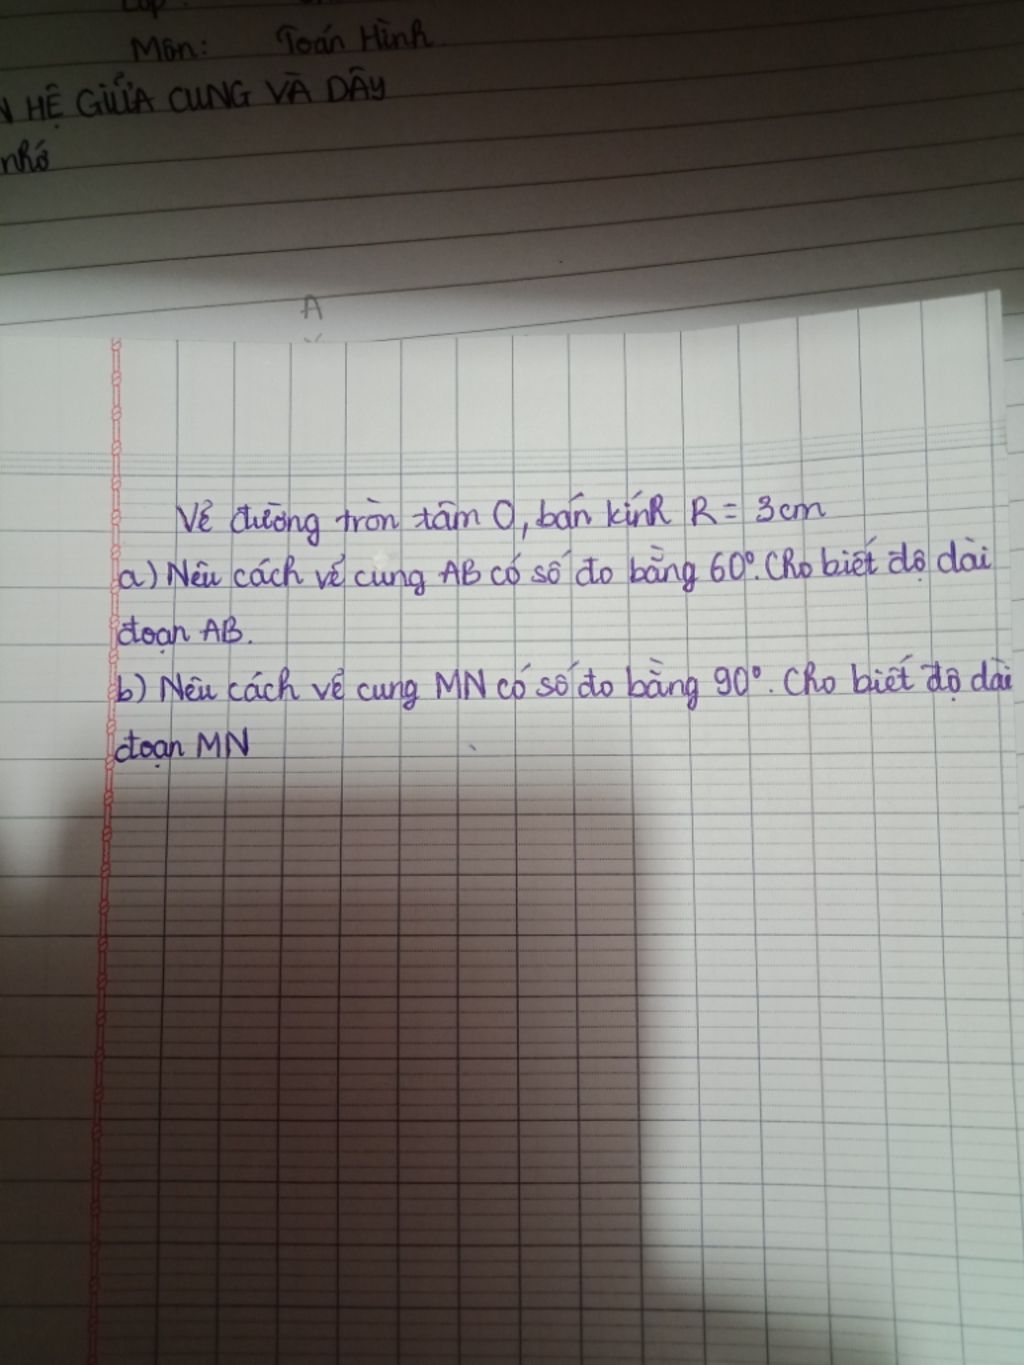 Lớp
Môn: Toán Hình
HỆ GIỮA CUNG VÀ DÂY
nhớ
A
Vẽ đường tròn tâm O, bán kính R = 3cm
a) Nêu cách vẽ cung AB có số đo bằng 60°. Cho biết độ dài
đoạn AB.
b) Nêu cách vẽ cung MN có số đo bằng 90°. Cho biết độ dài
đoạn MN